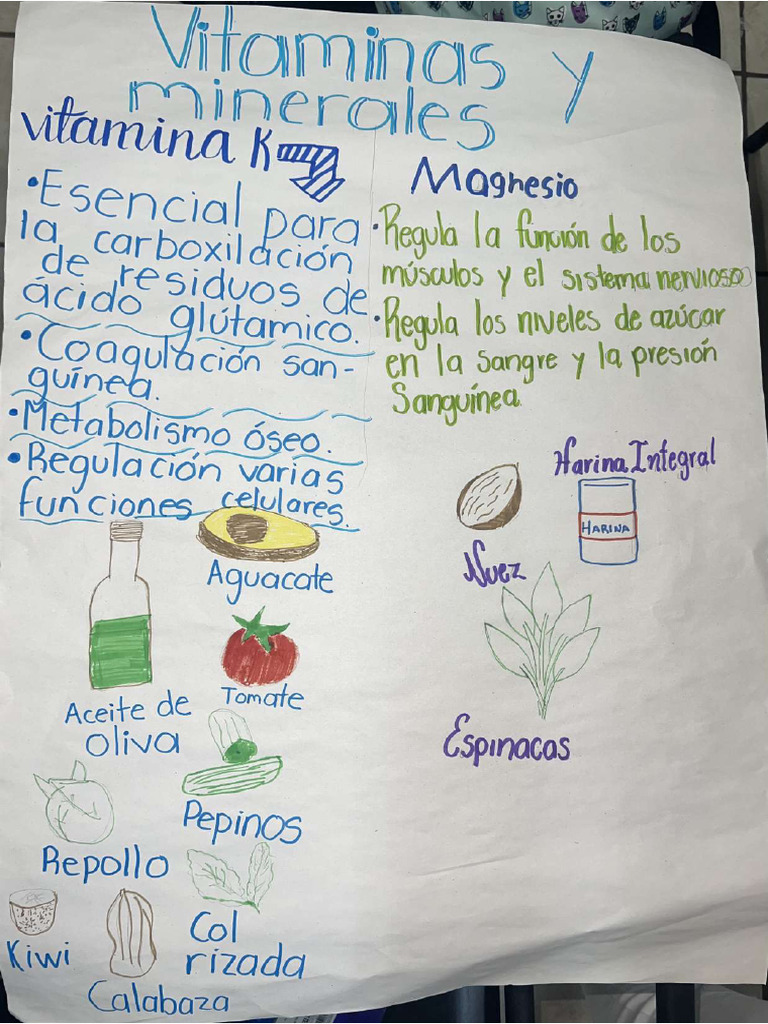 Vitaminas y
minerales
vitamina K
• Esencial para
la carboxilación
de residuos de
ácido glútamico.
• Coagulación san-
guínea.
• Metabolismo óseo.
• Regulación varias
funciones celulares.
Aguacate
Aceite de
oliva
Tomate
Pepinos
Repollo
Col
rizada
Kiwi
Calabaza
Magnesio
• Regula la función de los
músculos y el sistema nervioso
• Regula los niveles de azúcar
en la sangre y la presión
Sanguínea
Harina Integral
HARINA
Nuez
Espinacas